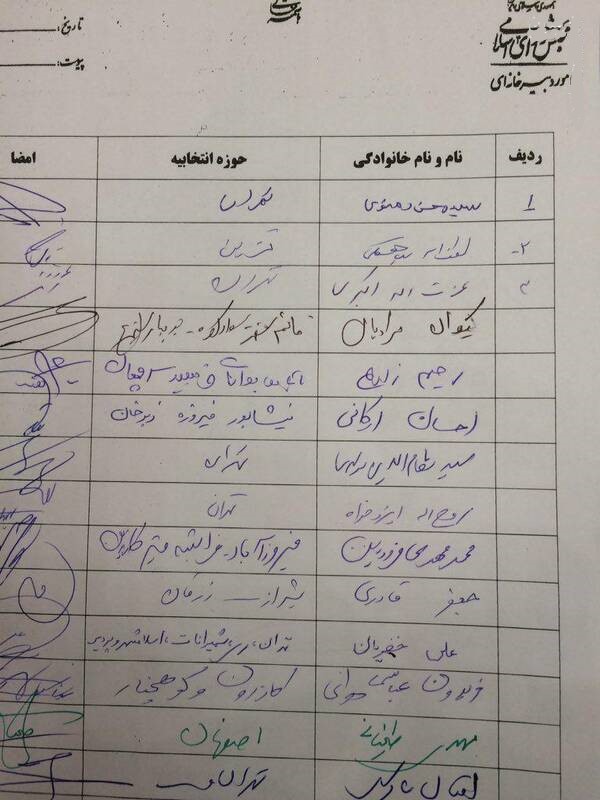 جمهوری اسلامی ایران
مجلس شورای اسلامی
امور دبیرخانه‌ای
تاریخ:
پیوست:
ردیف نام و نام خانوادگی حوزه انتخابیه امضا
۱ سید محسن تهران
۲- لطف اله قزوین
۳ عزت اله اکبری تهران
کیوان مرادیان قائم شهر سوادکوه - جویبار
رحیم زارع آباده
احسان ارکانی نیشابور فیروزه زبرخان
سید نظام الدین موسوی تهران
روح اله ایزدخواه تهران
محمد مهدی فروردین فیروزآباد - فراشبند قیر کارزین
جعفر قادری شیراز - زرقان
علی خضریان تهران، ری، شمیرانات، اسلامشهر و پردیس
فریدون عباسی دوانی کازرون و کوهچنار
مهدی طغیانی اصفهان
تهران